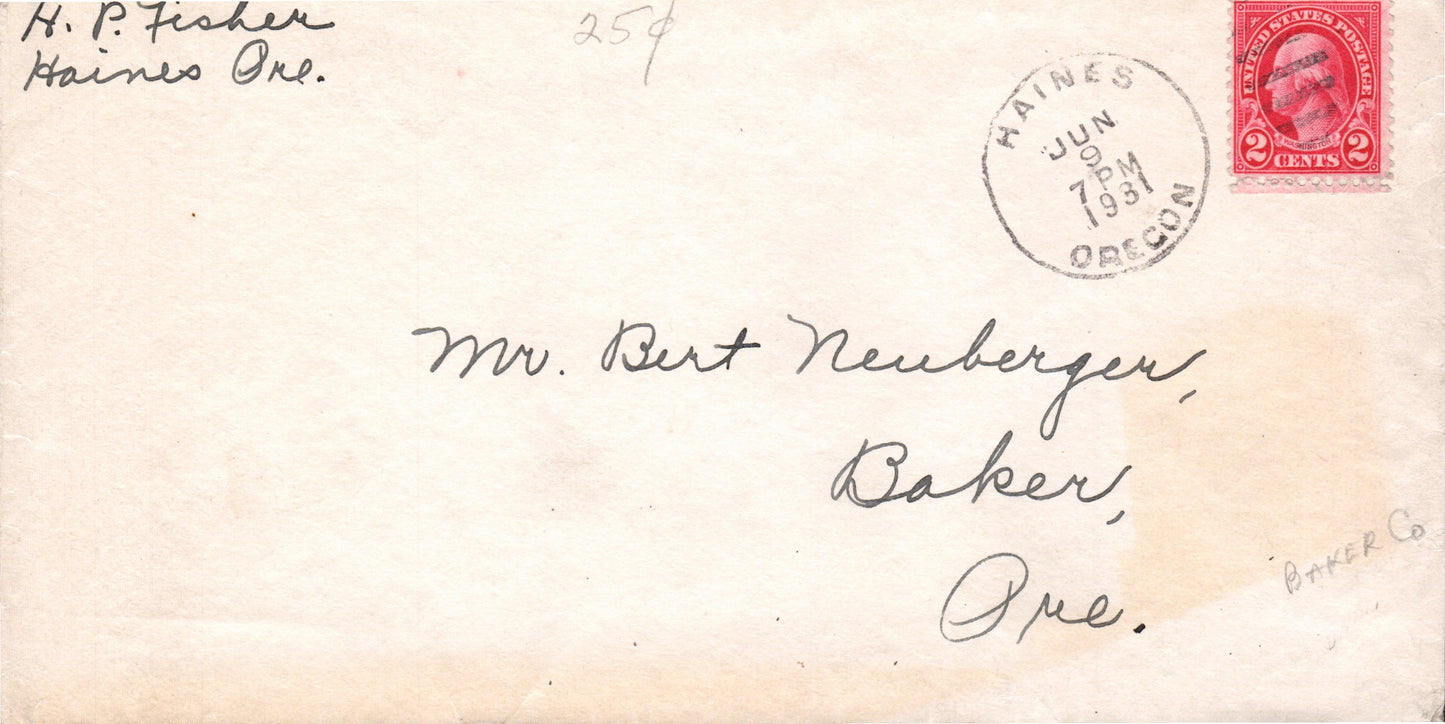 H. P. Fisher
Haines Ore.
25¢
HAINES
JUN
9
7 PM
1931
OREGON
UNITED STATES POSTAGE
WASHINGTON
2 CENTS 2
Mr. Bert Neuberger,
Baker,
Ore.
BAKER Co